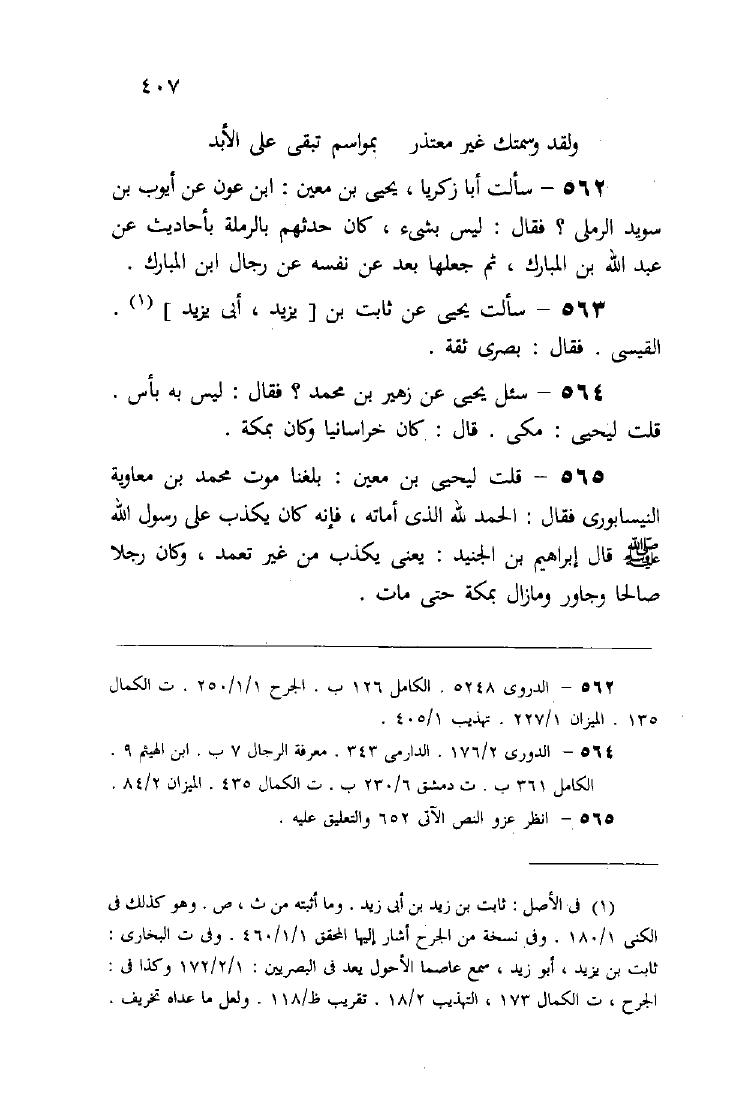 ٤٠٧
ولقد وسمتك غير معتذر    بمواسم تبقى على الأبد
٥٦٢ – سألت أبا زكريا ، يحيى بن معين : ابن عون عن أيوب بن
سويد الرملى ؟ فقال : ليس بشىء ، كان حدثهم بالرملة بأحاديث عن
عبد الله بن المبارك ، ثم جعلها بعد عن نفسه عن رجال ابن المبارك .
٥٦٣ – سألت يحيى عن ثابت بن [ يزيد ، أبى يزيد ] (١) .
القيسى . فقال : بصرى ثقة .
٥٦٤ – سئل يحيى عن زهير بن محمد ؟ فقال : ليس به بأس .
قلت ليحيى : مكى . قال : كان خراسانيا وكان بمكة .
٥٦٥ – قلت ليحيى بن معين : بلغنا موت محمد بن معاوية
النيسابورى فقال : الحمد لله الذى أماته ، فإنه كان يكذب على رسول الله
ﷺ قال إبراهيم بن الجنيد : يعنى يكذب من غير تعمد ، وكان رجلا
صالحا وجاور ومازال بمكة حتى مات .
٥٦٢ – الدروى ٥٢٤٨ . الكامل ١٢٦ ب . الجرح ٢٥٠/١/١ . ت الكمال
١٣٥ . الميزان ٢٢٧/١ . تهذيب ٤٠٥/١ .
٥٦٤ – الدورى ١٧٦/٢ . الدارمى ٣٤٣ . معرفة الرجال ٧ ب . ابن الهيثم ٩ .
الكامل ٣٦١ ب . ت دمشق ٢٣٠/٦ ب . ت الكمال ٤٣٥ . الميزان ٨٤/٢ .
٥٦٥ – انظر عزو النص الآتى ٦٥٢ والتعليق عليه .
(١) فى الأصل : ثابت بن زيد بن أبى زيد . وما أثبته من ث ، ص . وهو كذلك فى
الكنى ١٨٠/١ . وفى نسخة من الجرح أشار إليها المحقق ٤٦٠/١/١ . وفى ت البخارى :
ثابت بن يزيد ، أبو زيد ، سمع عاصما الأحول يعد فى البصريين : ١٧٢/٢/١ وكذا فى :
الجرح ، ت الكمال ١٧٣ ، التهذيب ١٨/٢ . تقريب ظ/١١٨ . ولعل ما عداه تخريف .